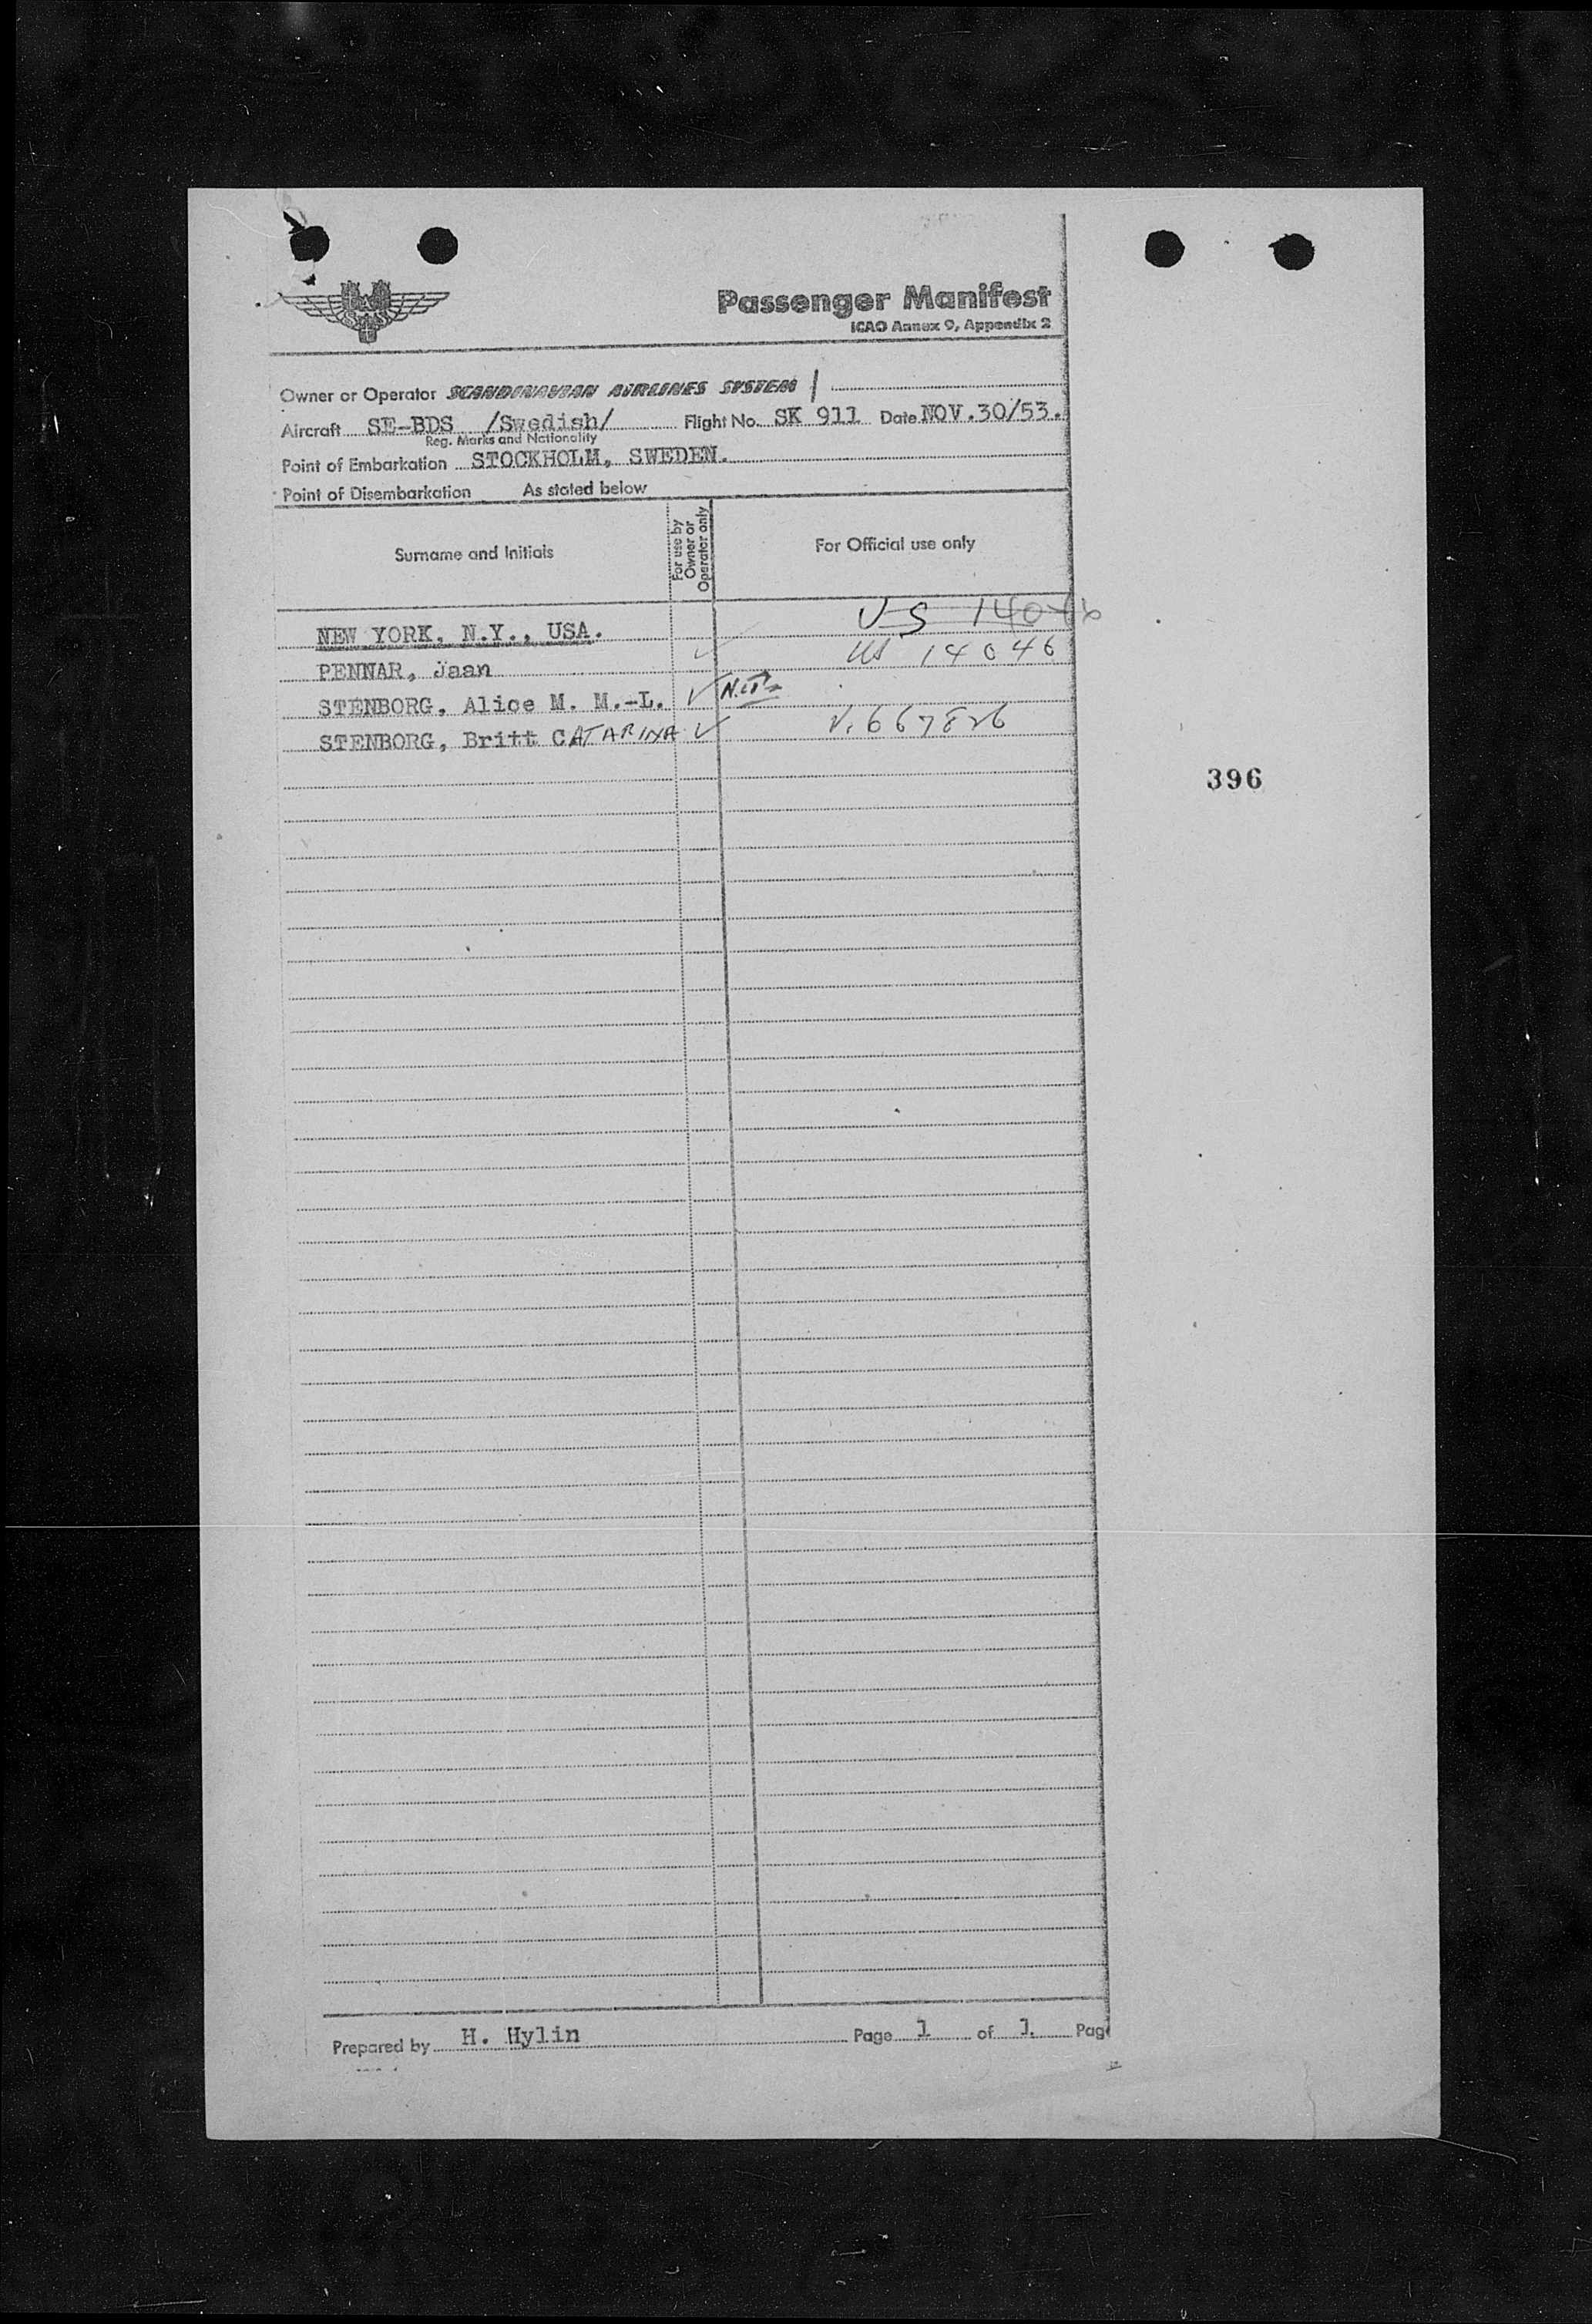 SAS
Passenger Manifest
ICAO Annex 9, Appendix 2
Owner or Operator SCANDINAVIAN AIRLINES SYSTEM
Aircraft SE-BDS /Swedish/ Flight No. SK 911 Date NOV.30/53.
Reg. Marks and Nationality
Point of Embarkation STOCKHOLM, SWEDEN.
Point of Disembarkation As stated below
Surname and Initials For use by Owner or Operator only For Official use only
US 14046
NEW YORK, N.Y., USA.
PENNAR, Jaan US 14046
STENBORG, Alice M. M.-L.
STENBORG, Britt CATARINA V. 667826
396
Prepared by H. Hylin Page 1 of 1. Pag